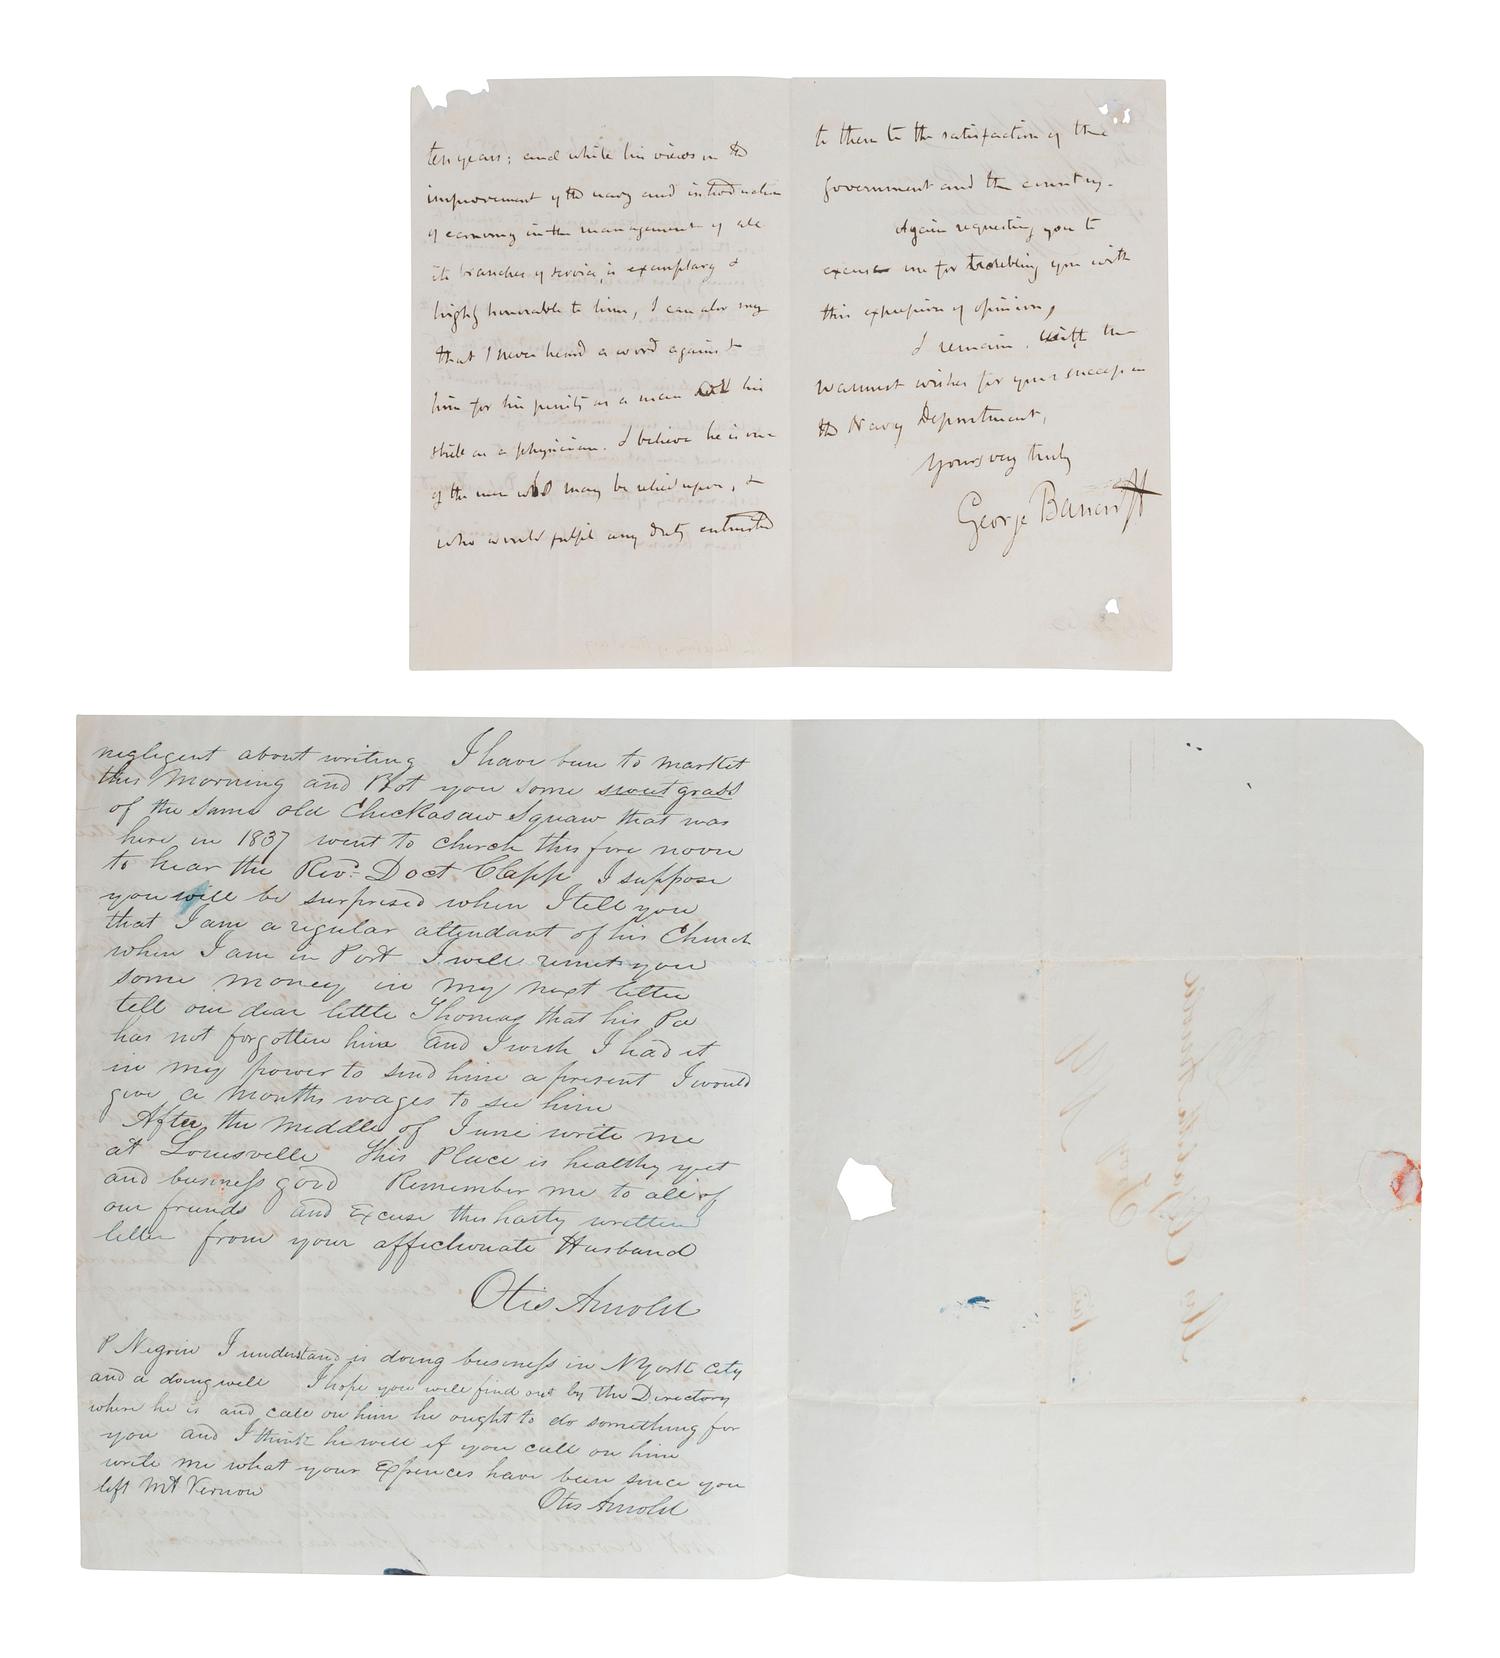 ten years; and while his views in the
improvement of the navy and introduction
of economy in the management of all
its branches of service, is exemplary &
highly honorable to him, I can also say
that I never heard a word against
him for his purity as a man and his
skill as a physician. I believe he is one
of the men who may be relied upon, &
who would fulfil any duty entrusted
to them to the satisfaction of the
government and the country.
Again requesting you to
excuse me for troubling you with
this expression of opinion,
I remain, with the
warmest wishes for your success in
the Navy Department,
Yours very truly
George Bancroft
negligent about writing I have been to market
this Morning and Bot you some sweet grass
of the same old Chickasaw Squaw that was
here in 1837 went to church this fore noon
to hear the Revd. Doct Clapp I suppose
you will be surprised when I tell you
that I am a regular attendant of his Church
when I am in Port I will remit you
some money in my next letter
tell our dear little Thomas that his Pa
has not forgotten him and I wish I had it
in my power to send him a present I would
give a months wages to see him
After the middle of June write me
at Louisville This Place is healthy yet
and business good Remember me to all of
our friends and Excuse this hasty written
letter from your affectionate Husband
Otis Arnold
P Negrin I understand is doing business in N York City
and a doing well I hope you will find out by the Directory
where he is and call on him he ought to do something for
you and I think he will if you call on him
write me what your Expences have been since you
left Mt Vernon
Otis Arnold